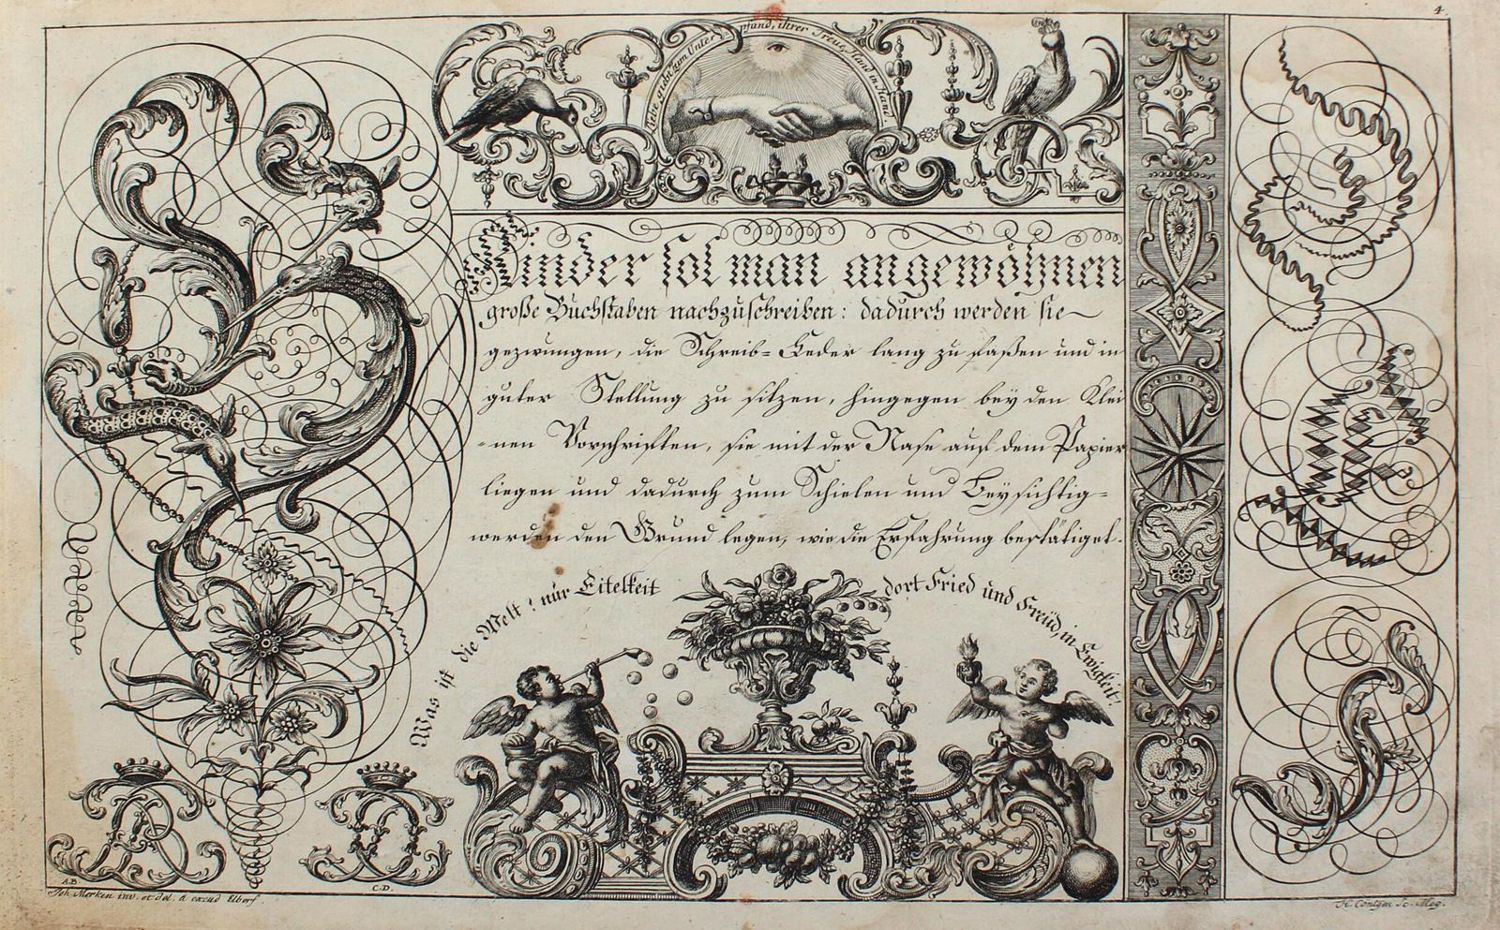 4.
Keine steht zum Unterpfand, ihrer Treue, Hand in Hand
Kinder sol man angewöhnen
große Buchstaben nachzuschreiben: dadurch werden sie
gezwungen, die Schreib=Feder lang zu faßen und in
guter Stellung zu sitzen, hingegen bey den Klei
=nen Vorschrifften, sie mit der Nase auf dem Papier
liegen und dadurch zum Schielen und Beysichtig=
werden den Grund legen, wie die Erfahrung bestätiget.
Was ist die Welt? nur Eitelkeit
dort Fried und Freüd, in Ewigkeit!
A.B.
C.D.
Joh. Merken inv. et del. & excud Elberf
H. Contgen Sc. Mog.